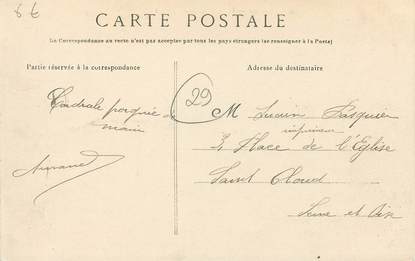 6 €
CARTE POSTALE
La Correspondance au recto n'est pas acceptée par tous les pays étrangers (se renseigner à la Poste)
Partie réservée à la correspondance
Adresse du destinataire
Cordiale poignée de
main
29
M Lucien Pasquier
3 Place de l'Église
Saint Cloud
Seine et Oise